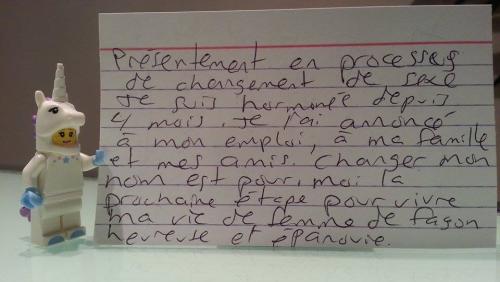 Présentement en processus
de changement de sexe
Je suis hormonée depuis
4 mois. Je l'ai annoncé
à mon emploi, à ma famille
et mes amis. Changer mon
nom est pour moi la
prochaine étape pour vivre
ma vie de femme de façon
heureuse et épanouie.